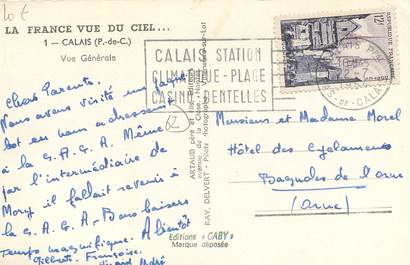 10 €
LA FRANCE VUE DU CIEL...
1 - CALAIS (P.-de-C.)
Vue Générale
Chers Parents.
Nous avons visité un paque
bot en nous adressant
à la S.A.G.A. Même
par l'intermédiaire de
Mory il fallait revenir à
la S.A.G.A - Bons baisers
Temps magnifique. A bientôt
Gilberte. Françoise.
André
62
ARTAUD père et fils, Éditeurs
avenue de la Close - Nantes
RAY. DELVERT - Pilote
Éditions "GABY"
Marque déposée
CALAIS STATION
CLIMATIQUE - PLAGE
CASINO DENTELLES
12F
DE-CALAIS
Monsieur et Madame Morel
Hôtel des Cyclamens
Bagnoles de l'Orne
(Orne)